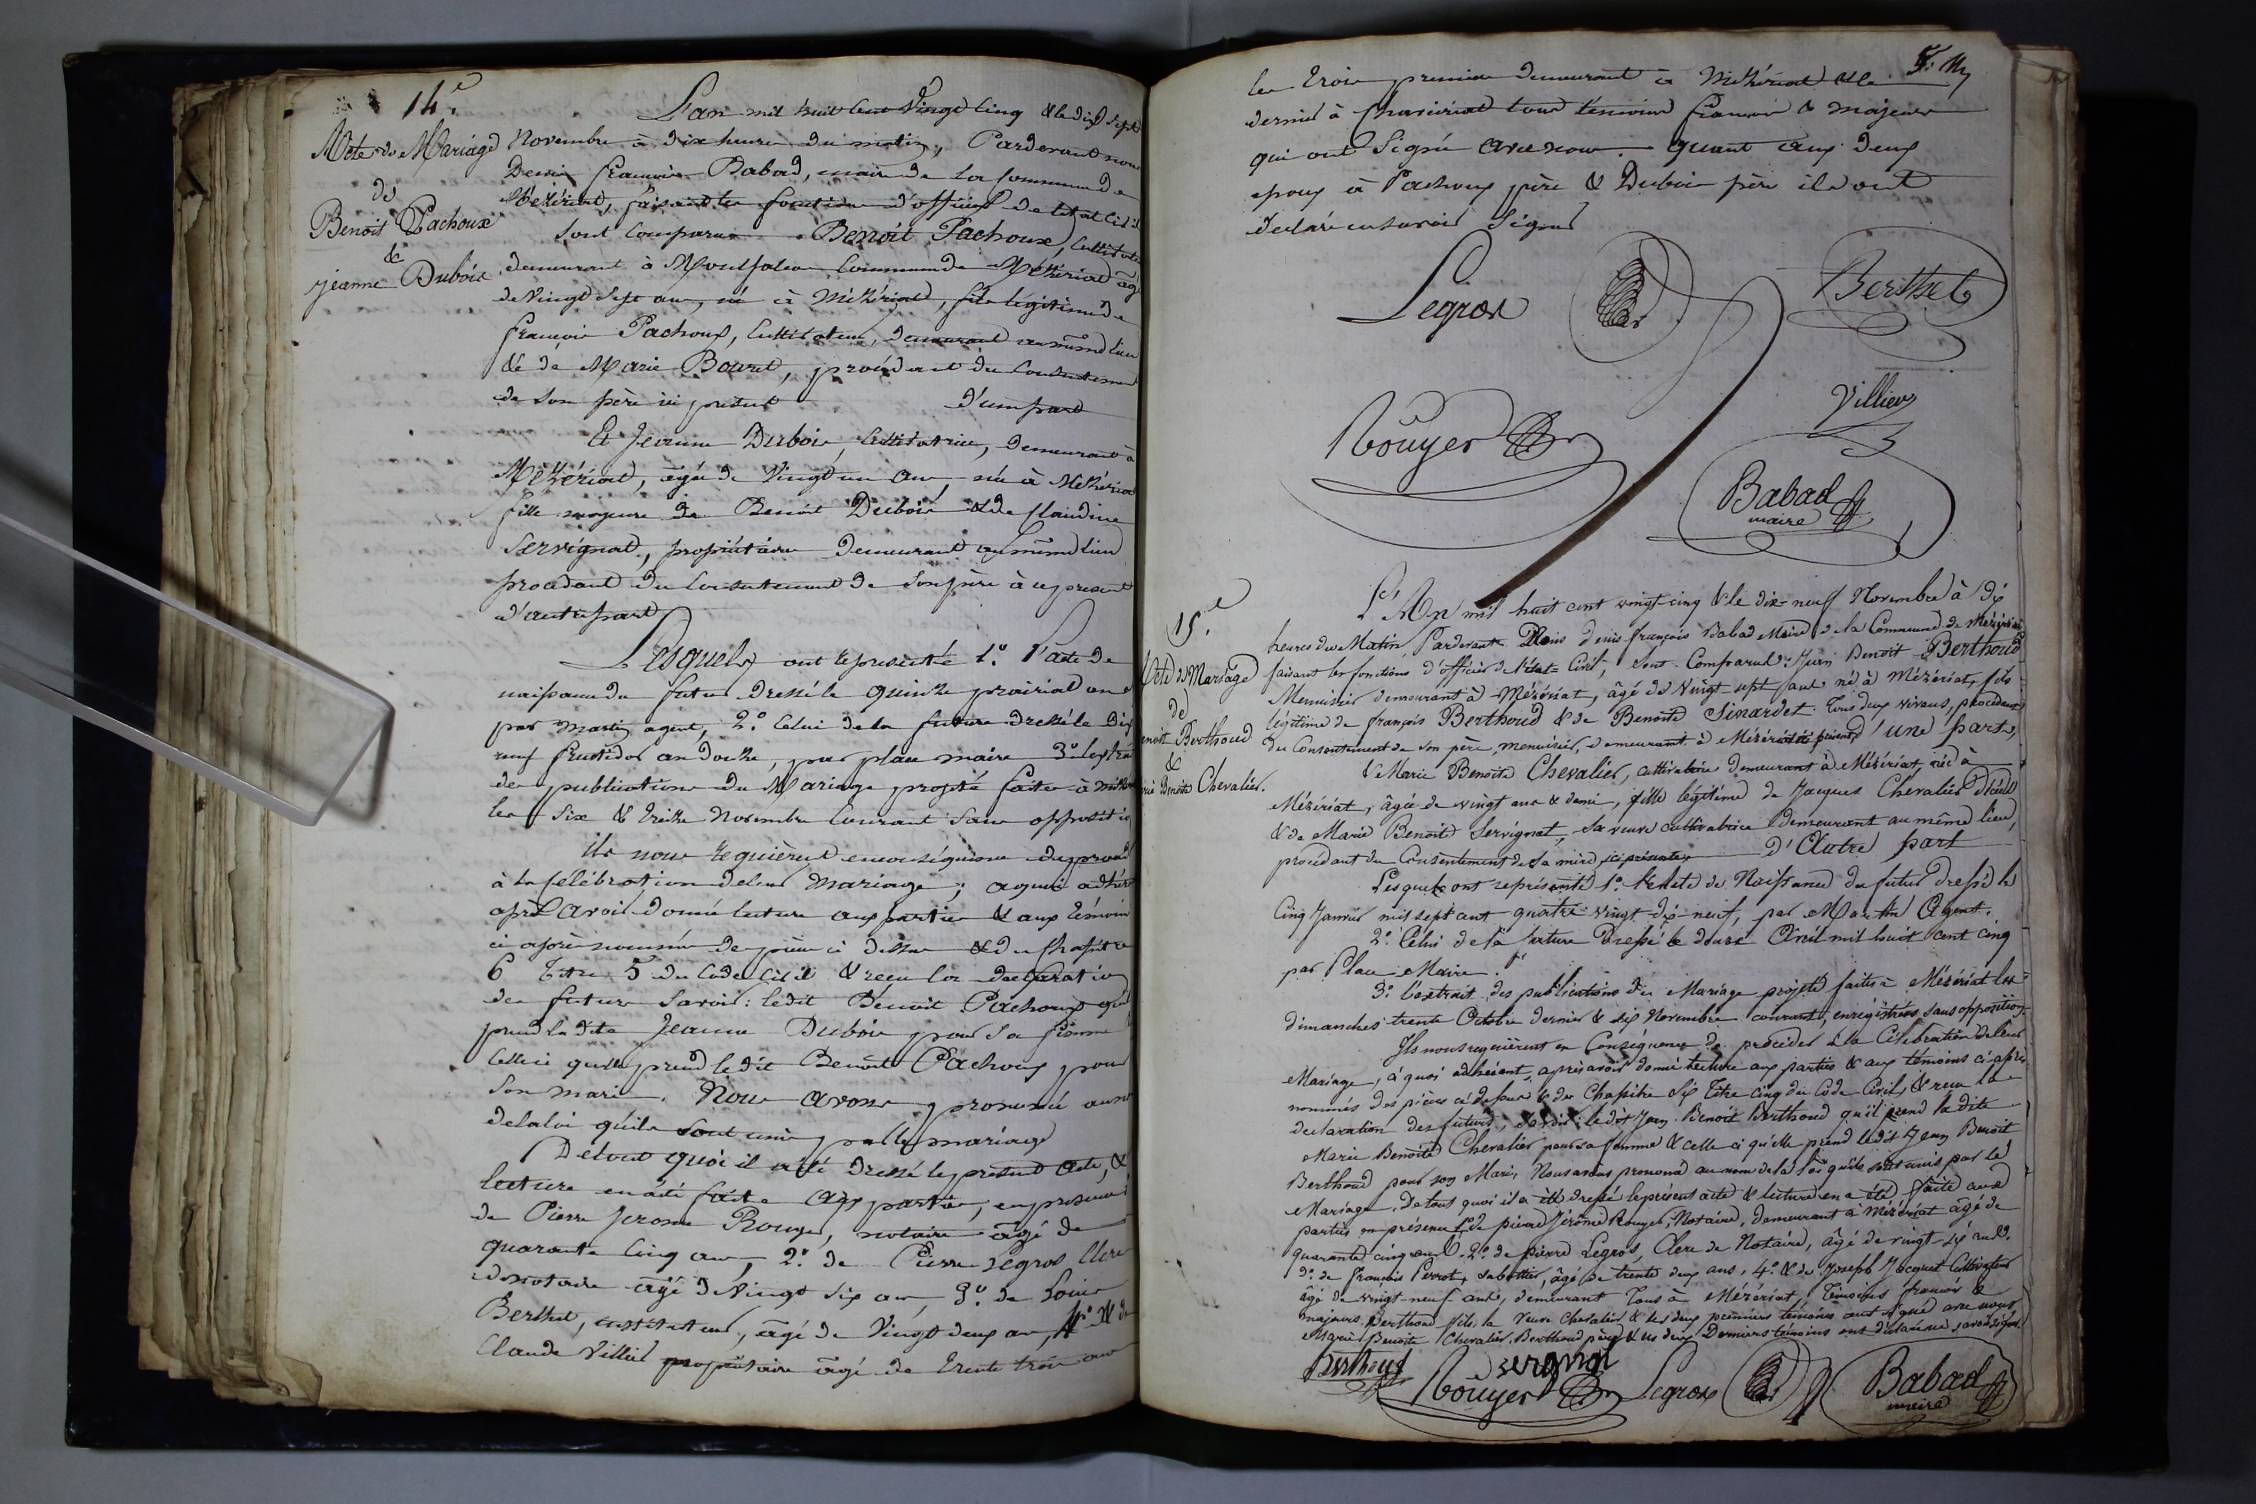 14e
Acte de Mariage
de
Benoit Pachoux
&
jeanne Dubois
L'an mil huit cent vingt cinq & le dix sept
Novembre à dix heures du matin, Pardevant nous
Denis françois Babad, maire de la commune de
Mézériat, faisant les fonctions d'officier de l'etat civil
sont comparus Benoit Pachoux, cultivateur
demeurant à Montfalcon commune de Mézériat âgé
de vingt sept ans, né à Mézériat, fils légitime de
françois Pachoux, cultivateur, demeurant au même lieu
& de Marie Bouvet, procédant du consentement
de son père ici présent d'une part
Et Jeanne Dubois, cultivatrice, demeurant à
Mézériat, âgée de vingt un ans, née à Mézériat
fille majeure de Benoit Dubois & de Claudine
Servignat, propriétaire demeurant au même lieu
procédant du consentement de son père à ce présent
d'autre part
Lesquels ont représenté 1.º l'acte de
naissance du futur dressé le quinze prairial an
par Martin agent, 2.º Celui de la future dressé le dix
neuf fructidor an douze, par place maire 3.º l'extrait
des publications du Mariage projeté faites à Mézériat
les six & treize Novembre courant sans opposition
ils nous requièrent en conséquence de procéder
à la célébration de leur mariage; à quoi adhérant
après avoir donné lecture aux parties & aux témoins
ci après nommés des pièces ci dessus & du chapitre
6 titre 5 du Code civil & reçu la déclaration
des futurs savoir: ledit Benoit Pachoux qu'il
prend la dite Jeanne Dubois pour sa femme &
celle ci qu'elle prend ledit Benoit Pachoux pour
son mari. Nous avons prononcé au nom
de la loi qu'ils sont unis par le mariage
De tout quoi il a été dressé le présent acte, &
lecture en a été faite aux parties, en présence
de Pierre Jerome Rouyer, notaire âgé de
quarante cinq ans, 2.º de Pierre Legros Clerc
de notaire âgé de vingt six ans, 3.º de Louis
Berthet, instituteur, âgé de vingt deux ans, 4.º & de
Claude Villier propriétaire âgé de trente trois ans
les trois premiers demeurant à Mézériat & le
dernier à Chaveriat tous témoins français & majeurs
qui ont signé avec nous. quant aux deux
epoux à Pachoux père & Dubois père ils ont
déclaré ne savoir signer
Legros
Berthet
Villier
Rouyer
Babad
maire
15.e
Acte de Mariage
de
Benoit Berthoud
&
Marie Benoite Chevalier.
L'An mil huit cent vingt-cinq & le dix-neuf Novembre à dix
heures du Matin, Pardevant Nous Denis françois Babad Maire de la Commune de Mézériat
faisant les fonctions d'officier de l'état Civil, sont Comparus: Jean Benoit Berthoud
Menuisier demeurant à Mézériat, âgé de vingt sept ans né à Mézériat, fils
légitime de françois Berthoud & de Benoite Sinardet tous deux vivans, procédant
du Consentement de son père, menuisier, demeurant à Mézériat ici présent, d'une part,
& Marie Benoite Chevalier, cultivatrice demeurant à Mézériat, née à
Mézériat, âgée de vingt ans & demi, fille légitime de Jacques Chevalier décédé
& de Marie Benoite Servignat, sa veuve cultivatrice demeurant au même lieu,
procédant du Consentement de sa mère ici présente, d'Autre part
Lesquels ont représenté 1.º l'acte de Naissance du futur dressé le
Cinq Janvier mil sept cent quatre-vingt-dix-neuf, par Martin Agent.
2.º Celui de la future Dressé le douze Avril mil huit cent cinq
par Place Maire.
3.º l'extrait des publications du Mariage projeté faites à Mézériat les
dimanches trente Octobre dernier & six Novembre courant, enregistrées sans opposition.
Ils nous requièrent en Conséquence de procéder à la Célébration de leur
Mariage, à quoi adhérant, après avoir donné lecture aux parties & aux témoins ci après
nommés des pièces ci dessus & du Chapitre Six Titre Cinq du Code Civil, & reçu la
declaration des futurs, savoir: ledit Jean Benoit Berthoud qu'il prend la dite
Marie Benoite Chevalier pour sa femme & celle ci qu'elle prend ledit Jean Benoit
Berthoud pour son Mari, Nous avons prononcé au nom de la loi qu'ils sont unis par le
Mariage. De tout quoi il a été dressé le présent acte & lecture en a été faite aux
parties en présence 1.º de pierre Jérôme Rouyer, Notaire, demeurant à Mézériat âgé de
quarante cinq ans. 2.º de pierre Legros, Clerc de Notaire, âgé de vingt-six ans.
3.º de François Perrot, sabottier, âgé de trente deux ans, 4.º & de Joseph Jacquet Cultivateur
âgé de vingt-neuf ans, demeurant tous à Mézériat, témoins français &
majeurs. Berthoud fils, la Veuve Chevalier & les deux premiers témoins ont signé avec nous
Marie Benoite Chevalier, Berthoud père & les deux Derniers témoins ont déclaré ne savoir signer.
Berthoud
servignat
Rouyer
Legros
Babad
maire